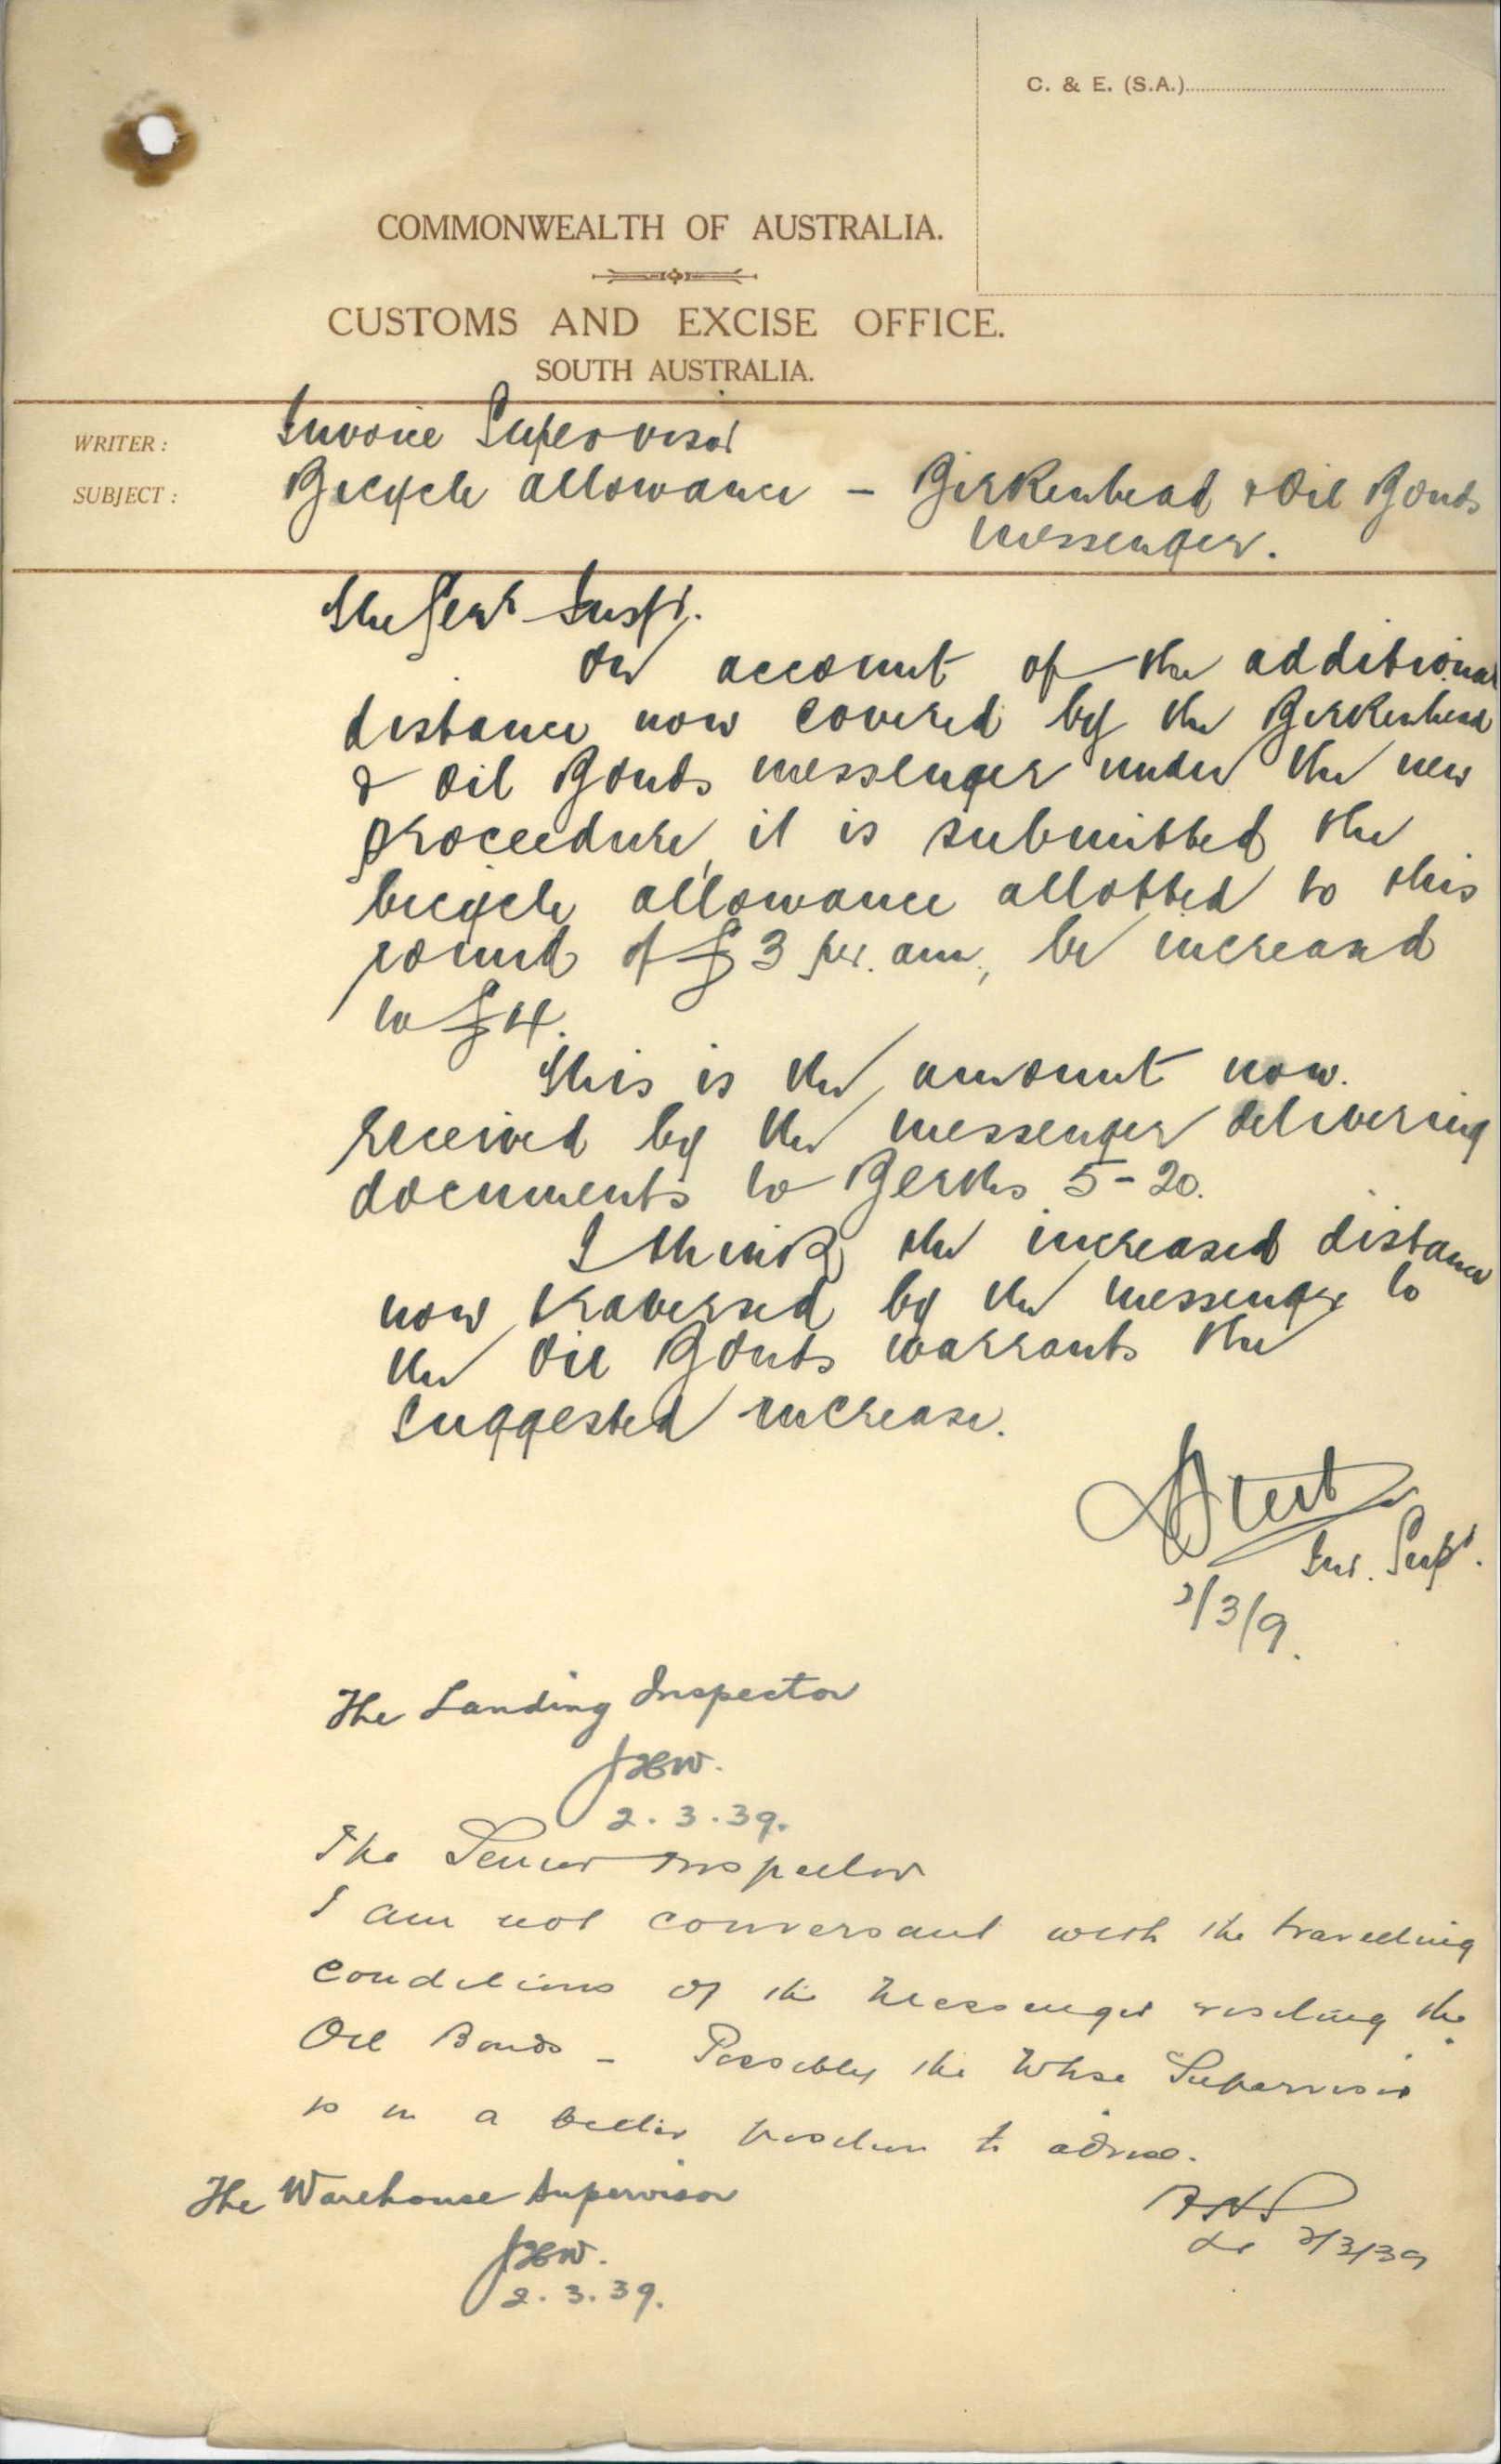 C. & E. (S.A.)
COMMONWEALTH OF AUSTRALIA.
CUSTOMS AND EXCISE OFFICE.
SOUTH AUSTRALIA.
WRITER: Invoice Supervisor
SUBJECT: Bicycle allowance - Birkenhead & Oil Bonds
messenger.
The Senr Inspr.
On account of the additional
distance now covered by the Birkenhead
& Oil Bonds messenger under the new
proceedure, it is submitted the
bicycle allowance allotted to this
round of £3 per. ann., be increased
to £4.
This is the amount now.
received by the messenger delivering
documents to Berths 5-20.
I think the increased distance
now traversed by the messenger to
the Oil Bonds warrants the
suggested increase.
Inv. Supr.
2/3/9.
The Landing Inspector
2.3.39.
The Senior Inspector
I am not conversant with the travelling
conditions of the Messenger visiting the
Oil Bonds - Possibly the Whse Supervisor
is in a better position to advise.
The Warehouse Supervisor
2/3/39
2.3.39.